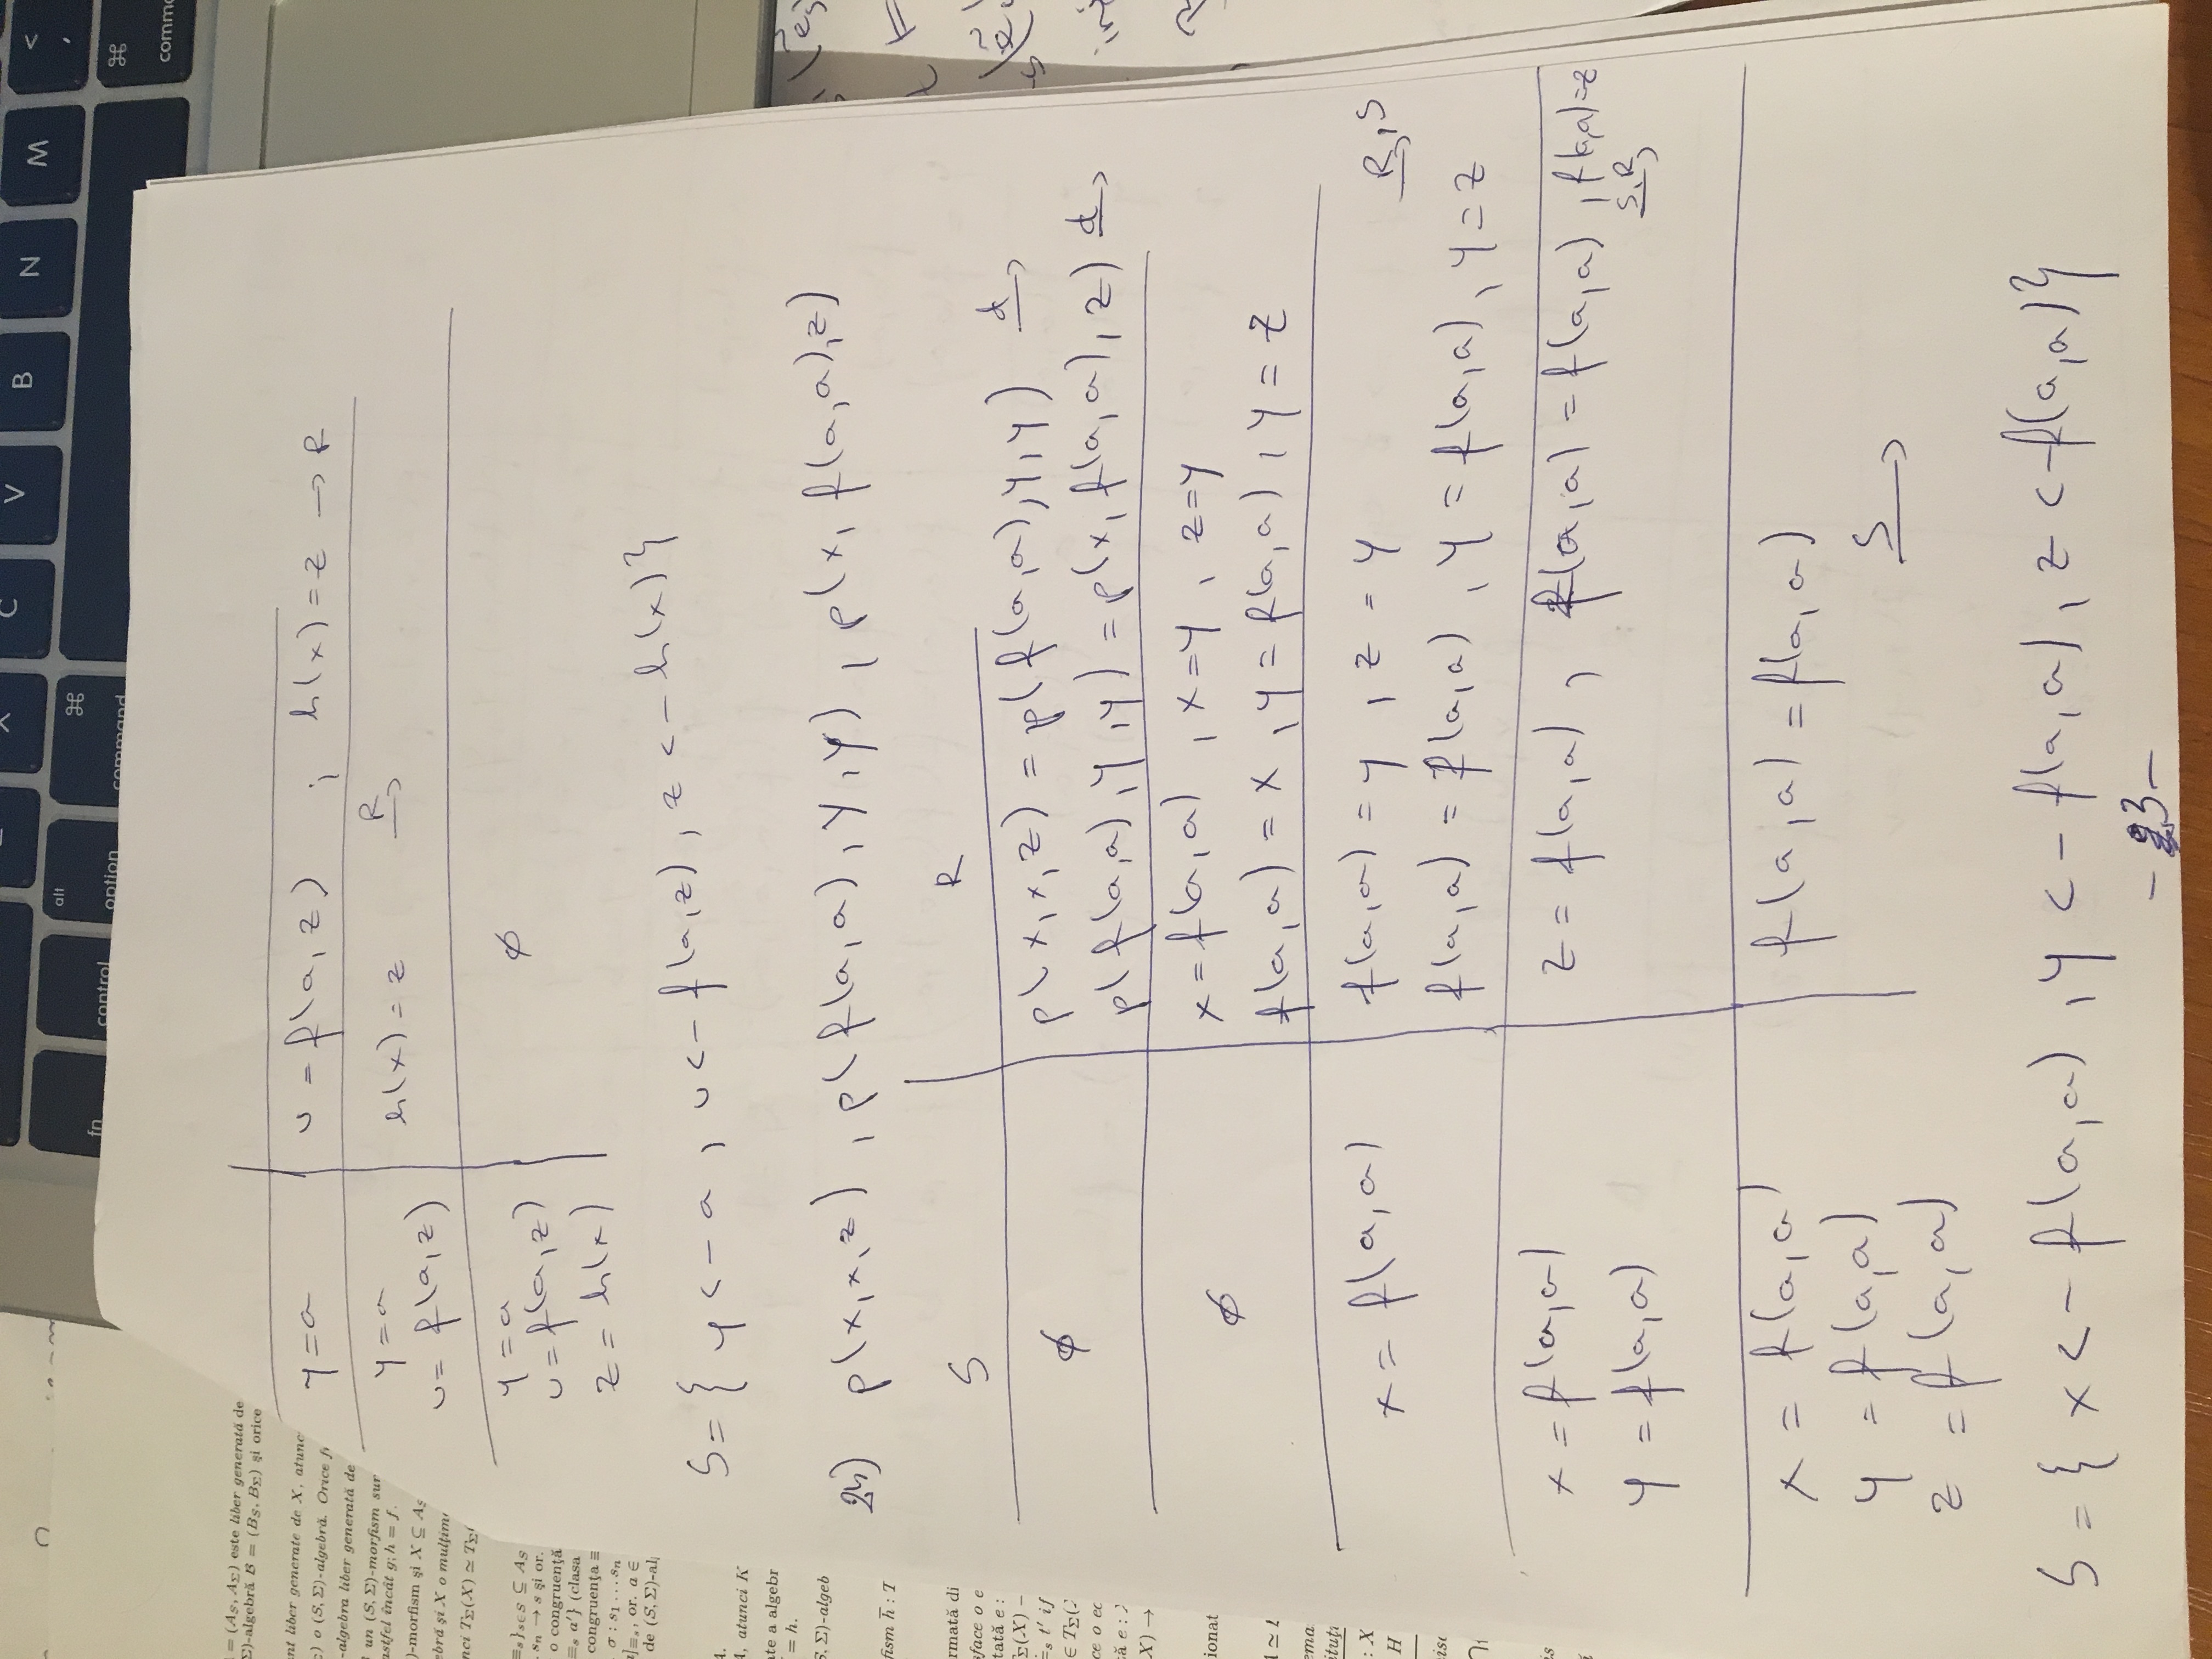 C V B N M < ,
fn control alt option ⌘ command ⌘
= (A_S, A_Σ) este liber generată de
Σ)-algebră B = (B_S, B_Σ) şi orice
nt liber generate de X, atunc
) o (S, Σ)-algebră. Orice
-algebra liber generată de
un (S, Σ)-morfism sur
astfel încât g; h = f.
)-morfism şi X ⊆ A_S
ebră şi X o mulţim
nci T_Σ(X) ≃ T_Σ
≡_s}_{s∈S} ⊆ A_S
s_n → s şi or.
o congruenţă
≡_s a'} (clasa
congruenţa ≡
σ : s_1 ... s_n
]≡_s, or. a ∈
de (S, Σ)-al
A, atunci K
te a algebr
= h.
S, Σ)-algeb
fism h̄ : T
rmată di
sface o e
tată e :
T_Σ(X) –
≐_s t' if
∈ T_Σ(
ce o ec
tă e :
X) →
ionat
y=a | u = f(a, z) ; h(x)=z → R
y=a | h(x) = z R→
u= f(a,z)
y=a | ∅
u=f(a,z)
z = h(x)
S={ y <- a , u <- f(a,z) , z <- h(x)}
24) p(x,x,z) , p(f(a,a),y,y) , p(x, f(a,a),z)
S | R
∅ | p(x,x,z) = p(f(a,a),y,y) d→
p(f(a,a),y,y) = p(x, f(a,a), z) d→
∅ | x=f(a,a) , x=y , z=y
f(a,a) = x , y = f(a,a) , y = z
x = f(a,a) | f(a,a) = y , z = y R,S→
f(a,a) = f(a,a) , y = f(a,a) , y=z
x =f(a,a) | z = f(a,a) , f(a,a) = f(a,a) , f(a,a)=z
y =f(a,a) S,R→
x = f(a,a) | f(a,a) = f(a,a)
y = f(a,a) S→
z =f(a,a)
S = { x <- f(a,a) , y <- f(a,a) , z <- f(a,a)}
- 23 -